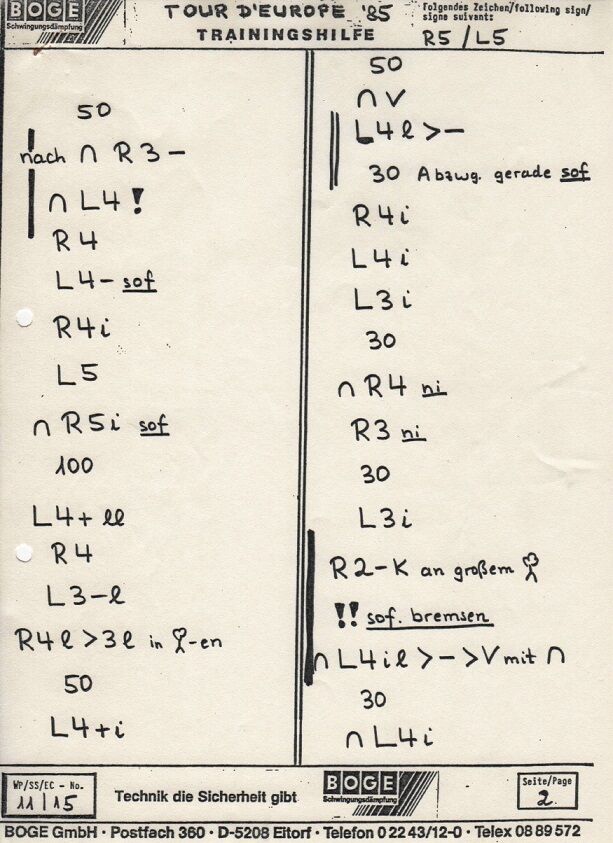 BOGE
Schwingungsdämpfung
TOUR D'EUROPE '85
TRAININGSHILFE
Folgendes Zeichen/following sign/
signe suivant:
R5/L5
50
nach ∩ R3-
∩ L4!
R4
L4- sof
R4i
L5
∩ R5i sof
100
L4+ ll
R4
L3-l
R4l>3l in -en
50
L4+i
50
∩ V
L4l>-
30 Abzwg. gerade sof
R4i
L4i
L3i
30
∩ R4 ni
R3 ni
30
L3i
R2-K an großem
!! sof. bremsen
∩ L4il>->V mit ∩
30
∩ L4i
WP/SS/EC - No.
11/15
Technik die Sicherheit gibt
BOGE
Schwingungsdämpfung
Seite/Page
2
BOGE GmbH · Postfach 360 · D-5208 Eitorf · Telefon 0 22 43/12-0 · Telex 08 89 572